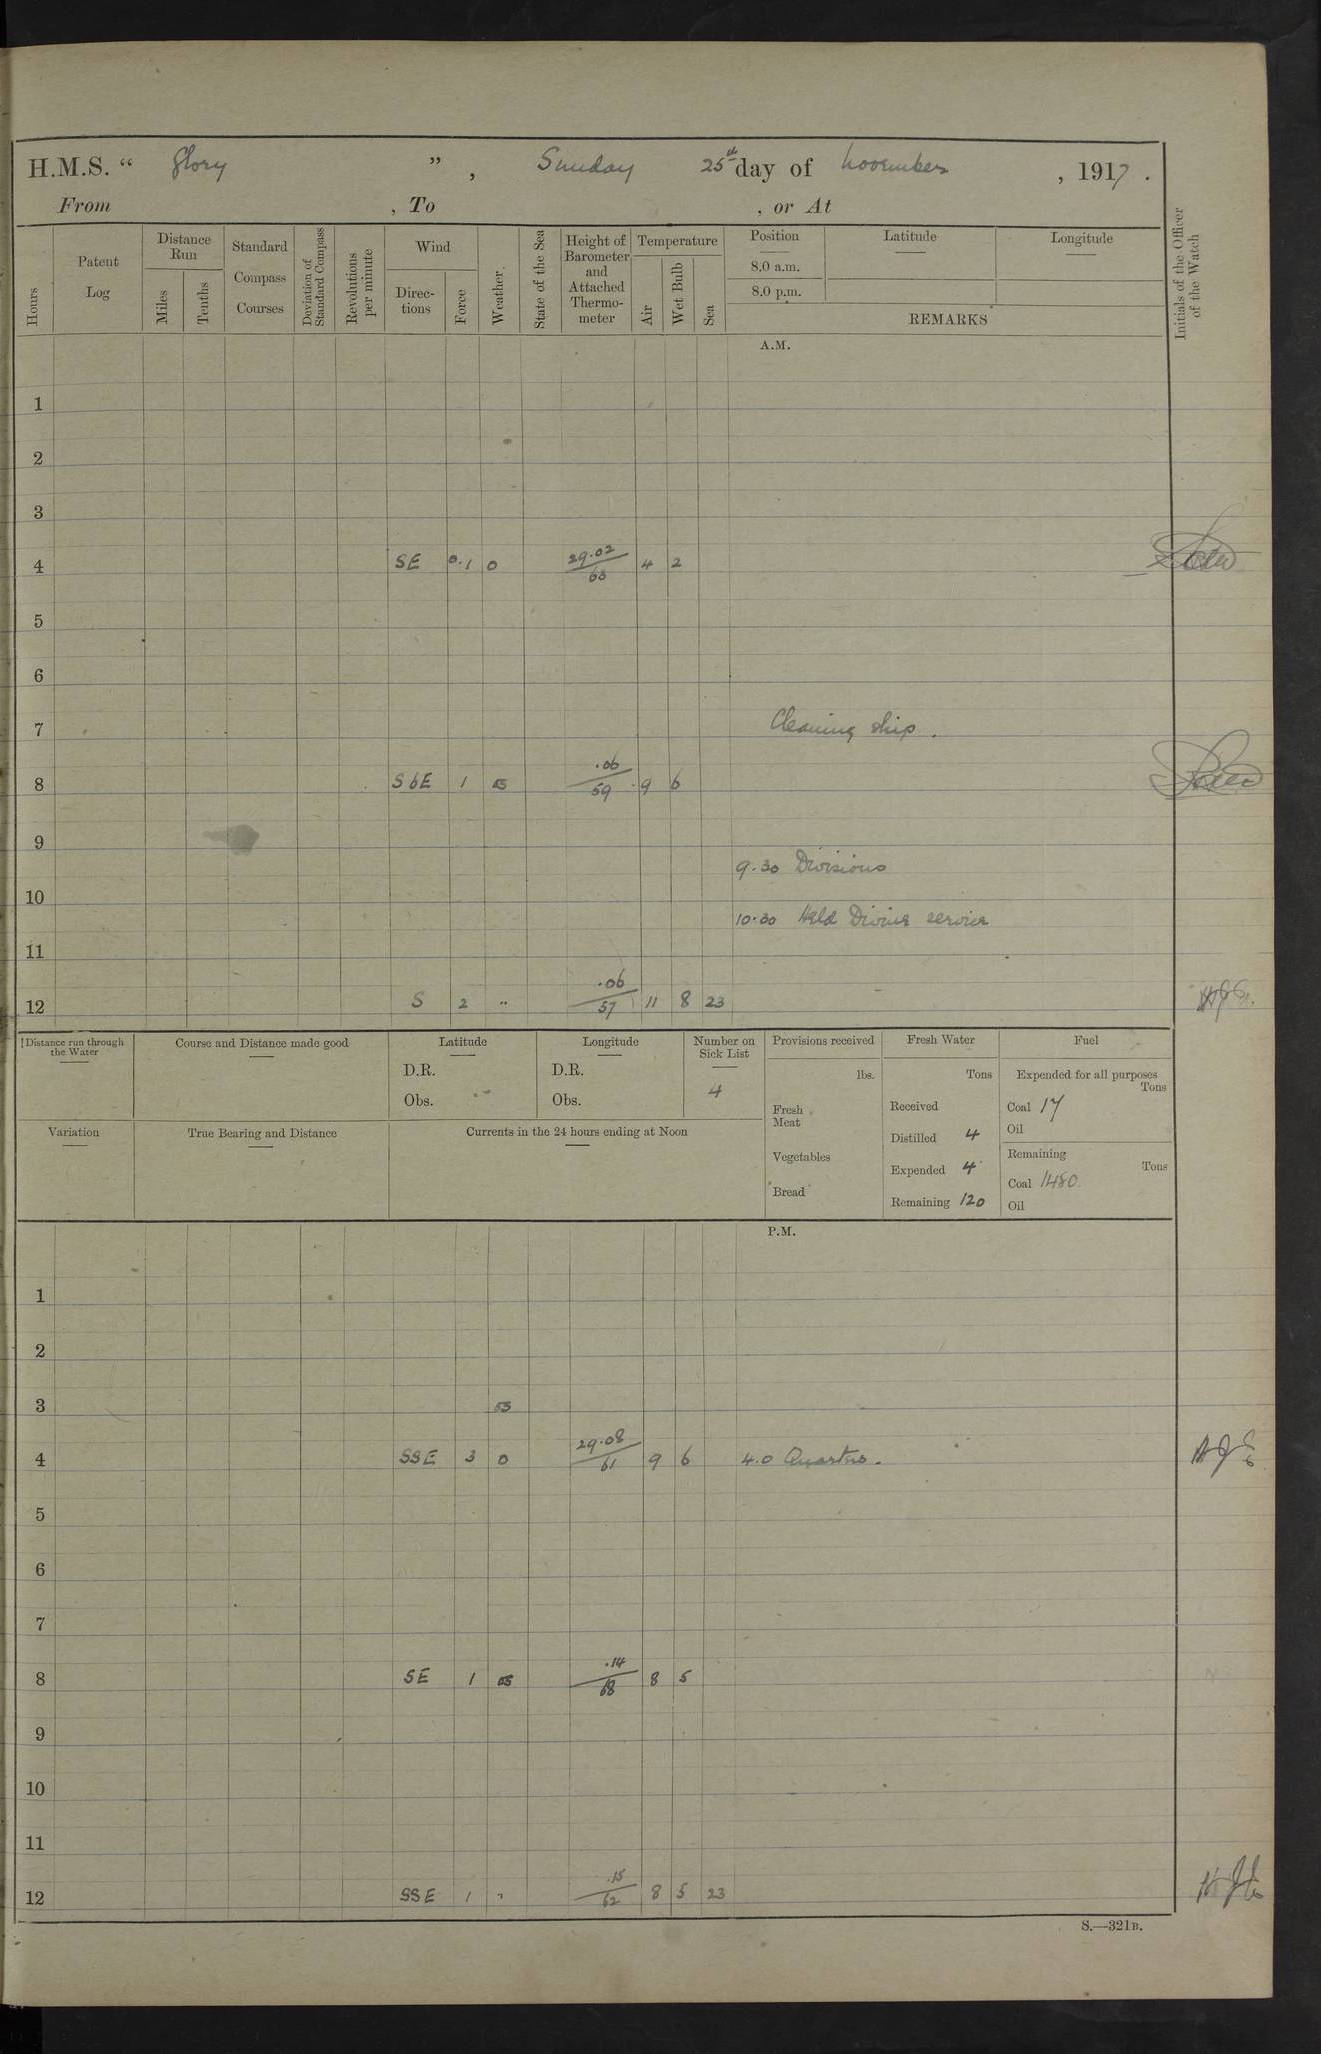 H.M.S. “ Glory ” , Sunday 25th day of November , 1917 .
From , To , or At
Hours
Patent Log
Distance Run
Miles
Tenths
Standard Compass Courses
Deviation of Standard Compass
Revolutions per minute
Wind
Directions
Force
Weather
State of the Sea
Height of Barometer and Attached Thermometer
Temperature
Air
Wet Bulb
Sea
Position
8.0 a.m.
8.0 p.m.
Latitude
Longitude
REMARKS
Initials of the Officer of the Watch
A.M.
1
2
3
4 SE 0.1 0 29.02/63 4 2
5
6
7 Cleaning ship.
8 SbE 1 .06/59 9 6
9
9.30 Divisions
10
10.30 Held Divine service
11
12 S 2 " .06/57 11 8 23
Distance run through the Water
Course and Distance made good
Latitude
D.R.
Obs.
Longitude
D.R.
Obs.
Number on Sick List
4
Provisions received
lbs.
Fresh Meat
Vegetables
Bread
Fresh Water
Tons
Received
Distilled 4
Expended 4
Remaining 120
Fuel
Expended for all purposes
Tons
Coal 17
Oil
Remaining
Tons
Coal 1480
Oil
Variation
True Bearing and Distance
Currents in the 24 hours ending at Noon
P.M.
1
2
3
4 SSE 3 0 29.08/61 9 6 4.0 Quarters.
5
6
7
8 SE 1 .14/68 8 5
9
10
11
12 SSE 1 " .15/62 8 5 23
S.—321B.